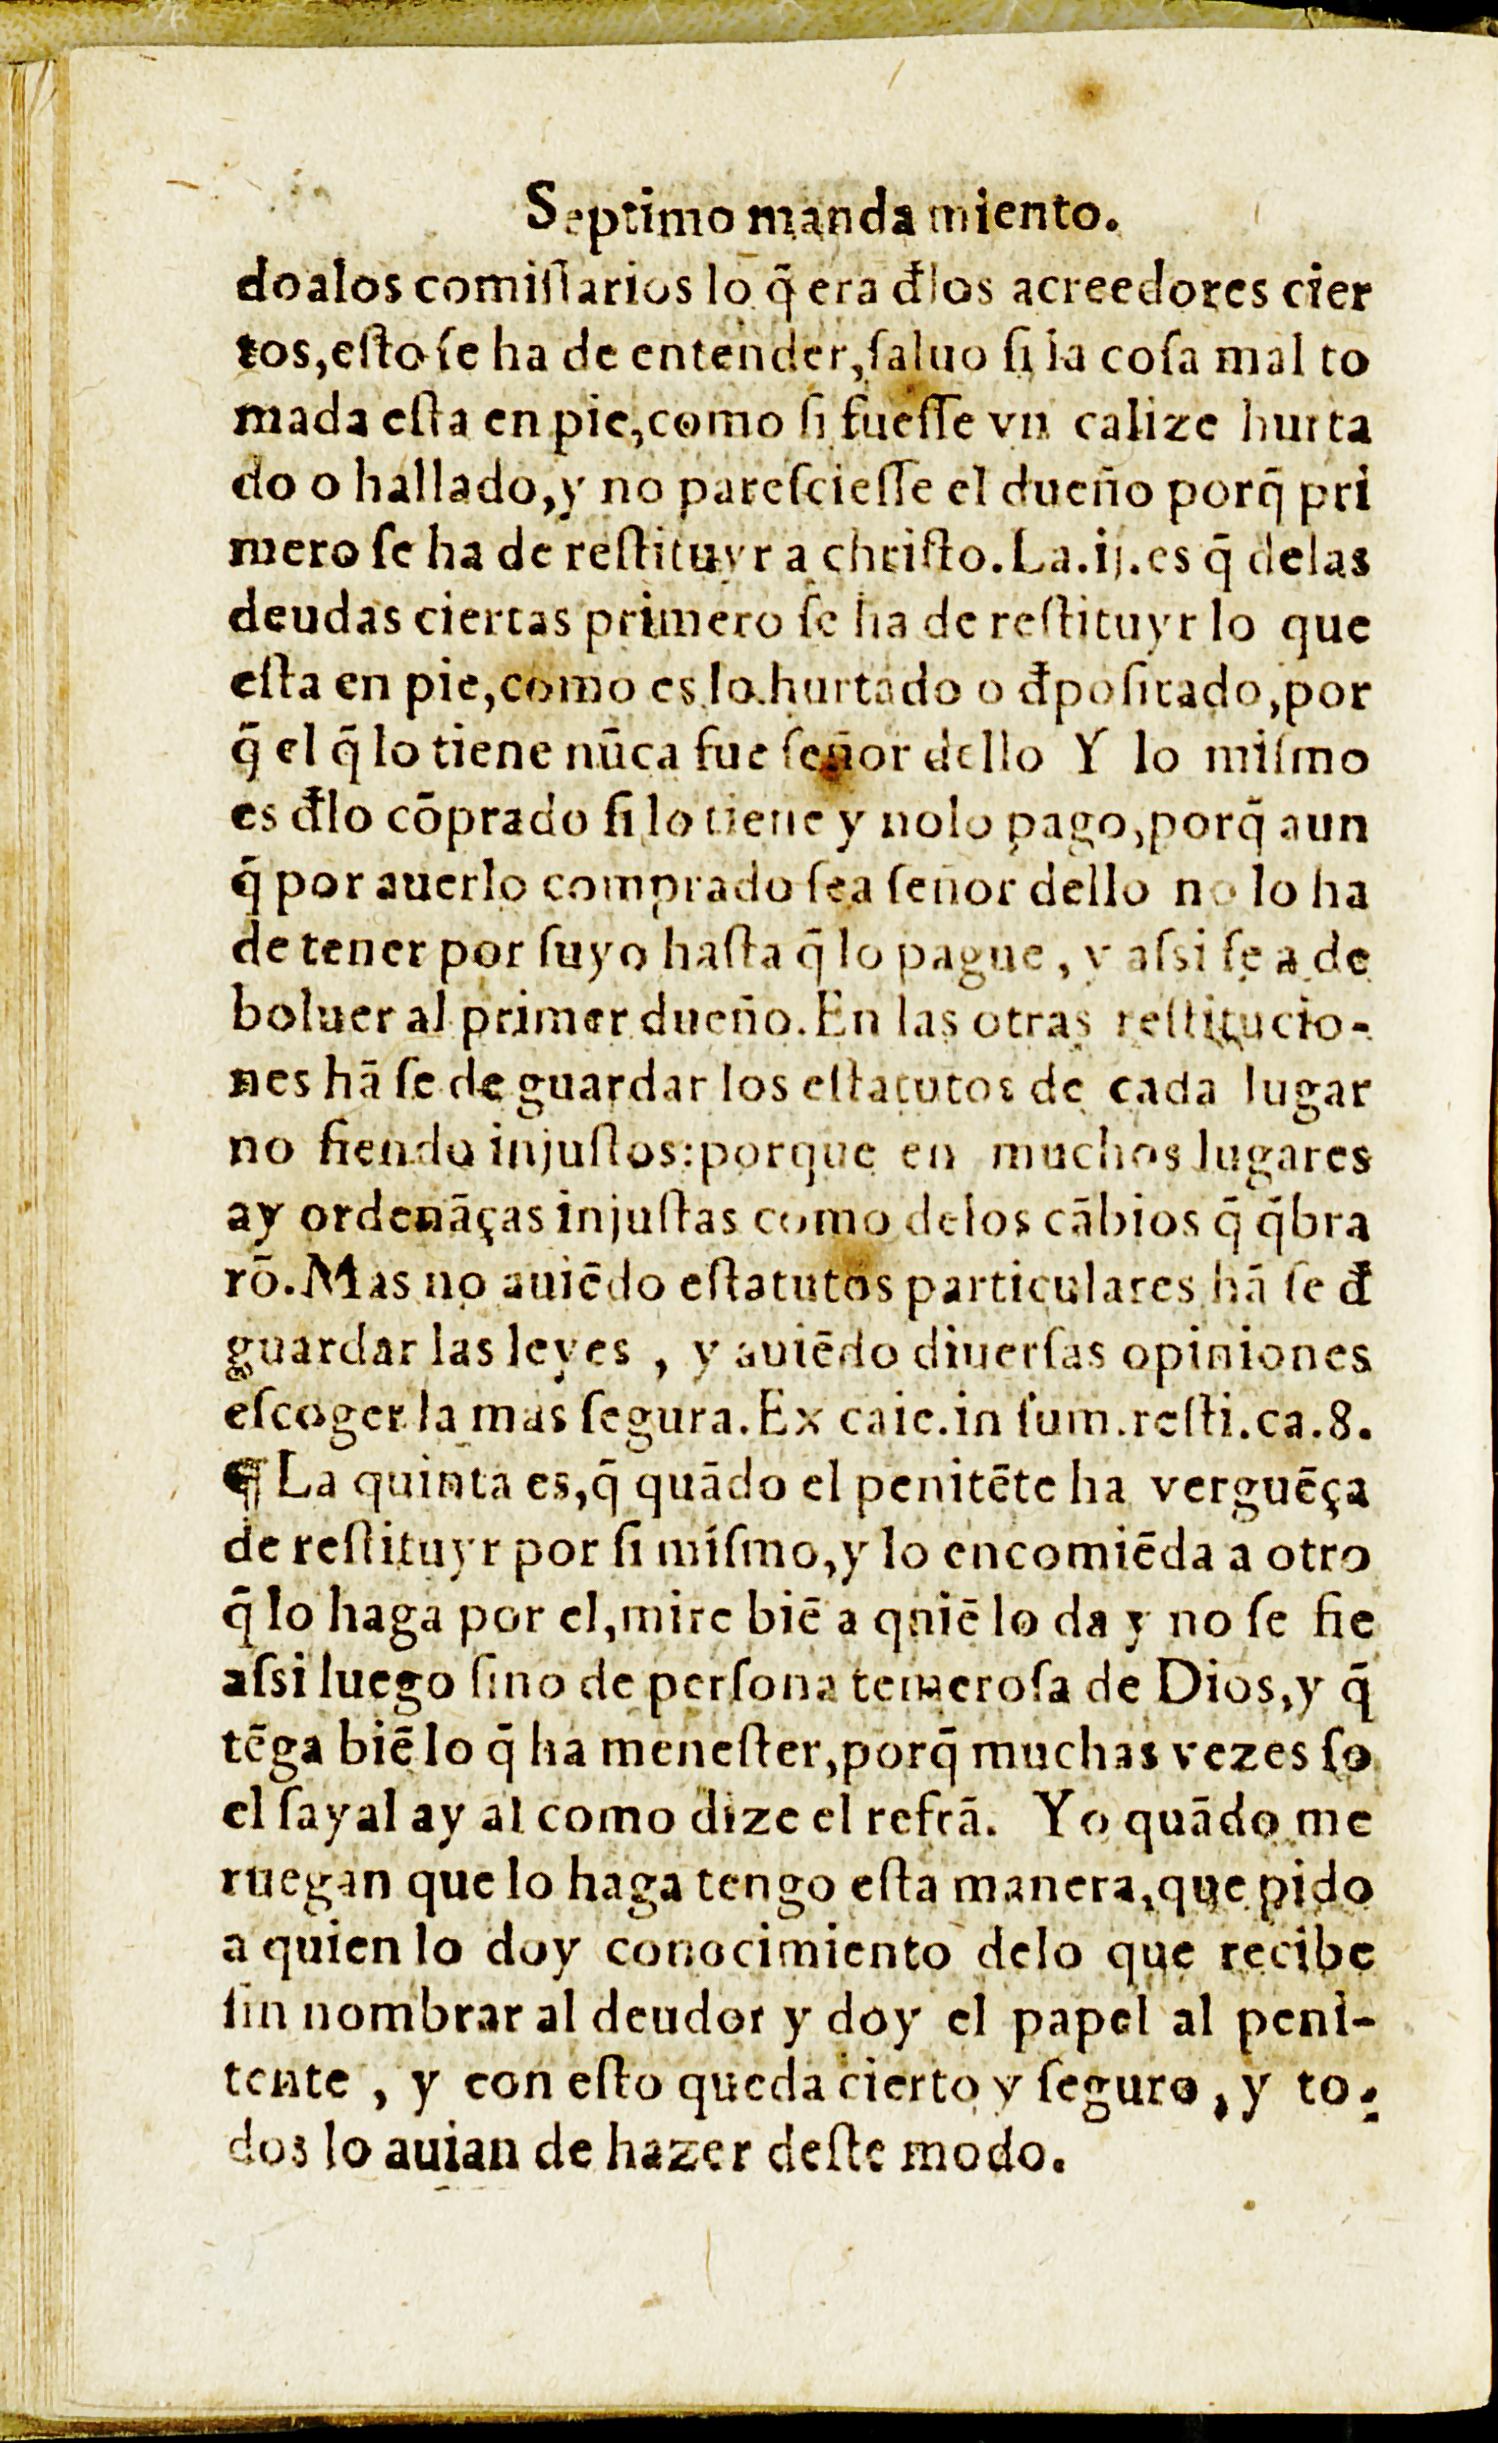 Septimo manda miento.
doalos comiſſarios lo q̄ era đlos acreedores cier
tos,eſto ſe ha de entender,ſaluo ſi la coſa mal to
mada eſta en pie,como ſi fueſſe vn calize hurta
do o hallado,y no pareſcieſſe el dueño porq̄ pri
mero ſe ha de reſtituyr a chriſto.La.ij.es q̄ delas
deudas ciertas primero ſe ha de reſtituyr lo que
eſta en pie,como es lo hurtado o đpoſitado,por
q̄ el q̄ lo tiene nūca fue ſeñor dello Y lo miſmo
es đlo cōprado ſi lo tiene y nolo pago,porq̄ aun
q̄ por auerlo comprado ſea ſeñor dello no lo ha
de tener por ſuyo haſta q̄ lo pague , y aſsi ſe a de
boluer al primer dueño.En las otras reſtitucio-
nes hā ſe de guardar los eſtatutos de cada lugar
no ſiendo injuſtos:porque en muchos lugares
ay ordenāças injuſtas como delos cābios q̄ q̄bra
rō.Mas no auiēdo eſtatutos particulares hā ſe đ
guardar las leyes , y auiēdo diuerſas opiniones
eſcoger la mas ſegura.Ex caie.in ſum.reſti.ca.8.
¶ La quinta es,q̄ quādo el penitēte ha verguēça
de reſtituyr por ſi miſmo,y lo encomiēda a otro
q̄ lo haga por el,mire biē a qniē lo da y no ſe fie
aſsi luego ſino de perſona temeroſa de Dios,y q̄
tēga biē lo q̄ ha meneſter,porq̄ muchas vezes ſo
el ſayal ay al como dize el refrā. Yo quādo me
ruegan que lo haga tengo eſta manera,que pido
a quien lo doy conocimiento delo que recibe
ſin nombrar al deudor y doy el papel al peni-
tente , y con eſto queda cierto y ſeguro , y to-
dos lo auian de hazer deſte modo.